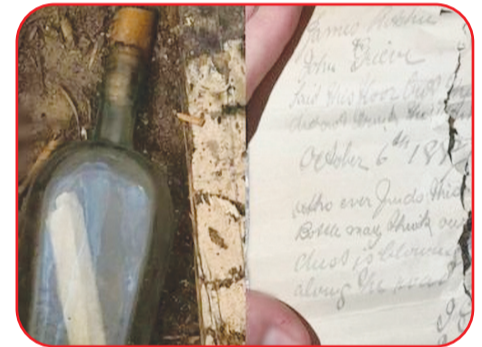 James Ritchie
&
John Grieve
laid this floor but
did not drink the
October 6th 188
who ever finds this
Bottle may think our
dust is blowing
along the road